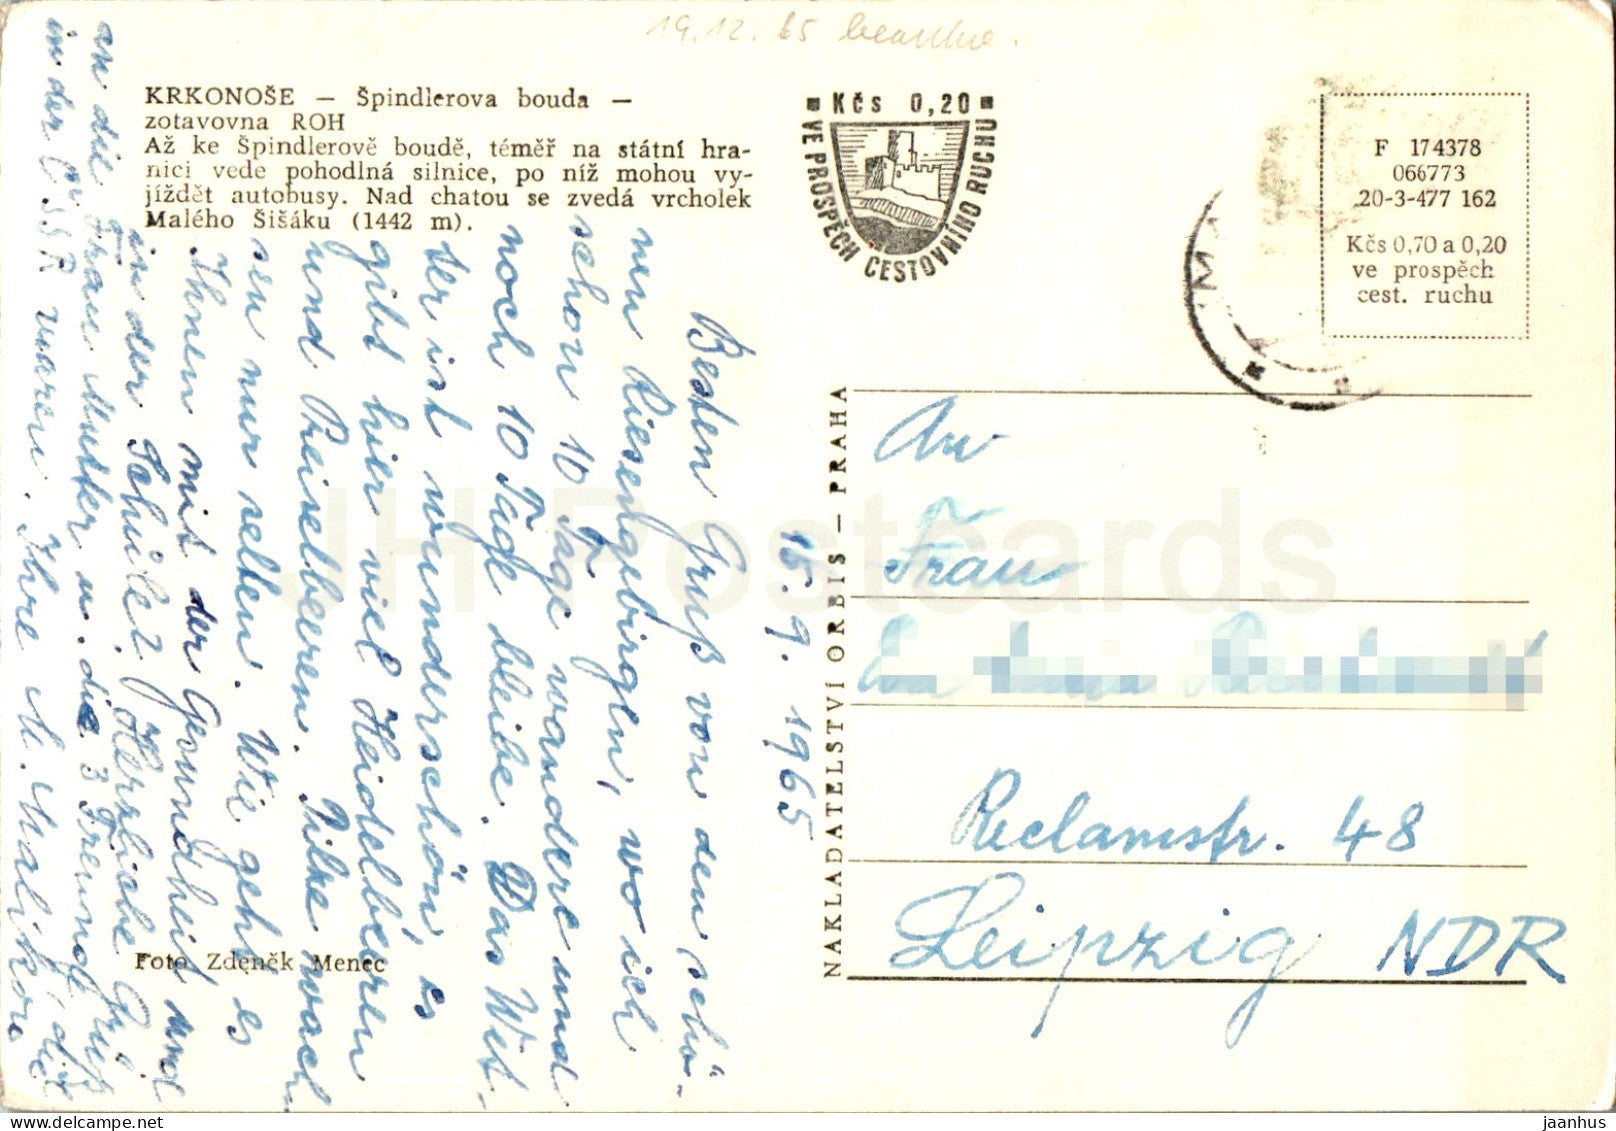 19.12.65
KRKONOŠE — Špindlerova bouda —
zotavovna ROH
Až ke Špindlerově boudě, téměř na státní hra-
nici vede pohodlná silnice, po níž mohou vy-
jíždět autobusy. Nad chatou se zvedá vrcholek
Malého Šišáku (1442 m).
Kčs 0,20
VE PROSPĚCH CESTOVNÍHO RUCHU
F 174378
066773
20-3-477 162
Kčs 0,70 a 0,20
ve prospěch
cest. ruchu
15. 9. 1965
Besten Gruß von dem schö-
nen Riesengebirglen, wo ich
schon 10 Tage wandere und
noch 10 Tage bleibe. Das Wet-
ter ist wunderschön, es
gibt hier viel Heidelbeeren
und Preiselbeeren. Pilze wach-
sen nur selten. Wie geht es
Ihnen mit der Gesundheit und
in der Schule? Herzliche Grüße
an die Frau Mutter u. die 3 Freunde, die
in der ČSSR waren. Ihre M.
Foto Zdeněk Menec
NAKLADATELSTVÍ ORBIS — PRAHA
An
Frau
Reclamstr. 48
Leipzig NDR
JH Postcards
jaanhus